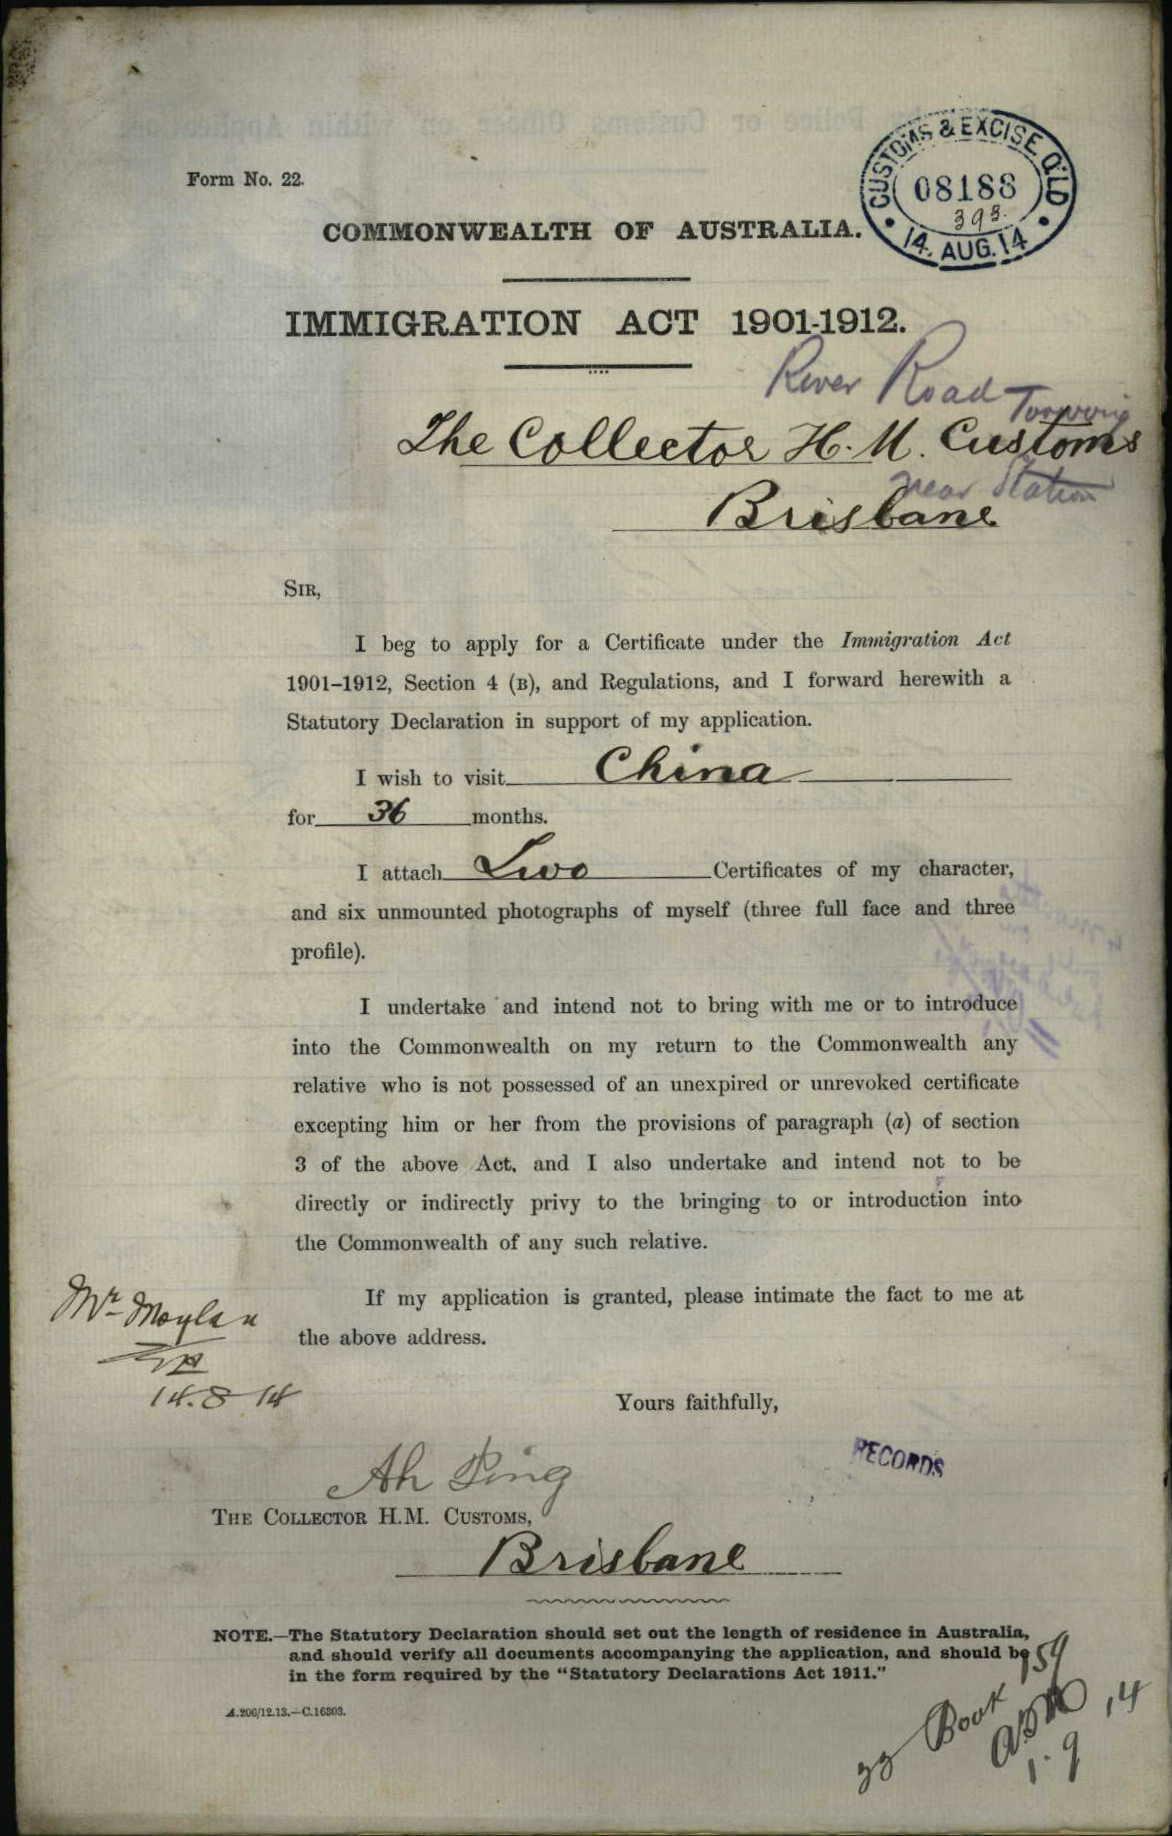 Form No. 22.
CUSTOMS & EXCISE Q'LD
08188
393.
14. AUG. 14
COMMONWEALTH OF AUSTRALIA.
IMMIGRATION ACT 1901-1912.
River Road Toowong
The Collector H. M. Customs
near Station
Brisbane
SIR,
I beg to apply for a Certificate under the Immigration Act
1901–1912, Section 4 (B), and Regulations, and I forward herewith a
Statutory Declaration in support of my application.
I wish to visit China
for 36 months.
I attach Two Certificates of my character,
and six unmounted photographs of myself (three full face and three
profile).
I undertake and intend not to bring with me or to introduce
into the Commonwealth on my return to the Commonwealth any
relative who is not possessed of an unexpired or unrevoked certificate
excepting him or her from the provisions of paragraph (a) of section
3 of the above Act, and I also undertake and intend not to be
directly or indirectly privy to the bringing to or introduction into
the Commonwealth of any such relative.
If my application is granted, please intimate the fact to me at
the above address.
Mr Moylan
14.8 14
Yours faithfully,
RECORDS
Ah Ping
THE COLLECTOR H.M. CUSTOMS,
Brisbane
NOTE.—The Statutory Declaration should set out the length of residence in Australia,
and should verify all documents accompanying the application, and should be
in the form required by the "Statutory Declarations Act 1911."
A.206/12.13.—C.16303.
33 Book 159
1.9.14